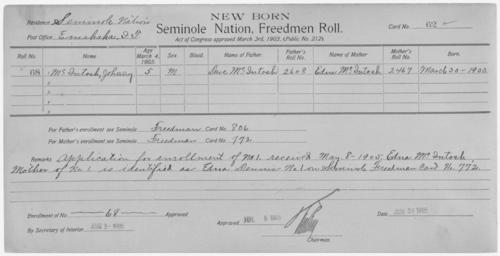 NEW BORN
Residence Seminole Nation
Seminole Nation, Freedmen Roll.
Card No. 602
Post Office Emahaka, I.T.
Act of Congress approved March 3rd, 1905, (Public No. 212).
Roll No. Name Age March 4, 1905. Sex Blood Name of Father Father's Roll No. Name of Mother Mother's Roll No. Born.
68 McIntosh, Johnny 5 M McIntosh 2608 Edna McIntosh 2467 March 30-1900
For Father's enrollment see Seminole Freedman Card No. 806
For Mother's enrollment see Seminole Freedman Card No. 772
Remarks Application for enrollment of No 1. received May 8-1905, Edna McIntosh,
Mother of No 1 is identified as Edna No 1 on Seminole Freedman Card No. 772.
Enrollment of No. 68 Approved
Approved
Approved
by Secretary of Interior
Chairman